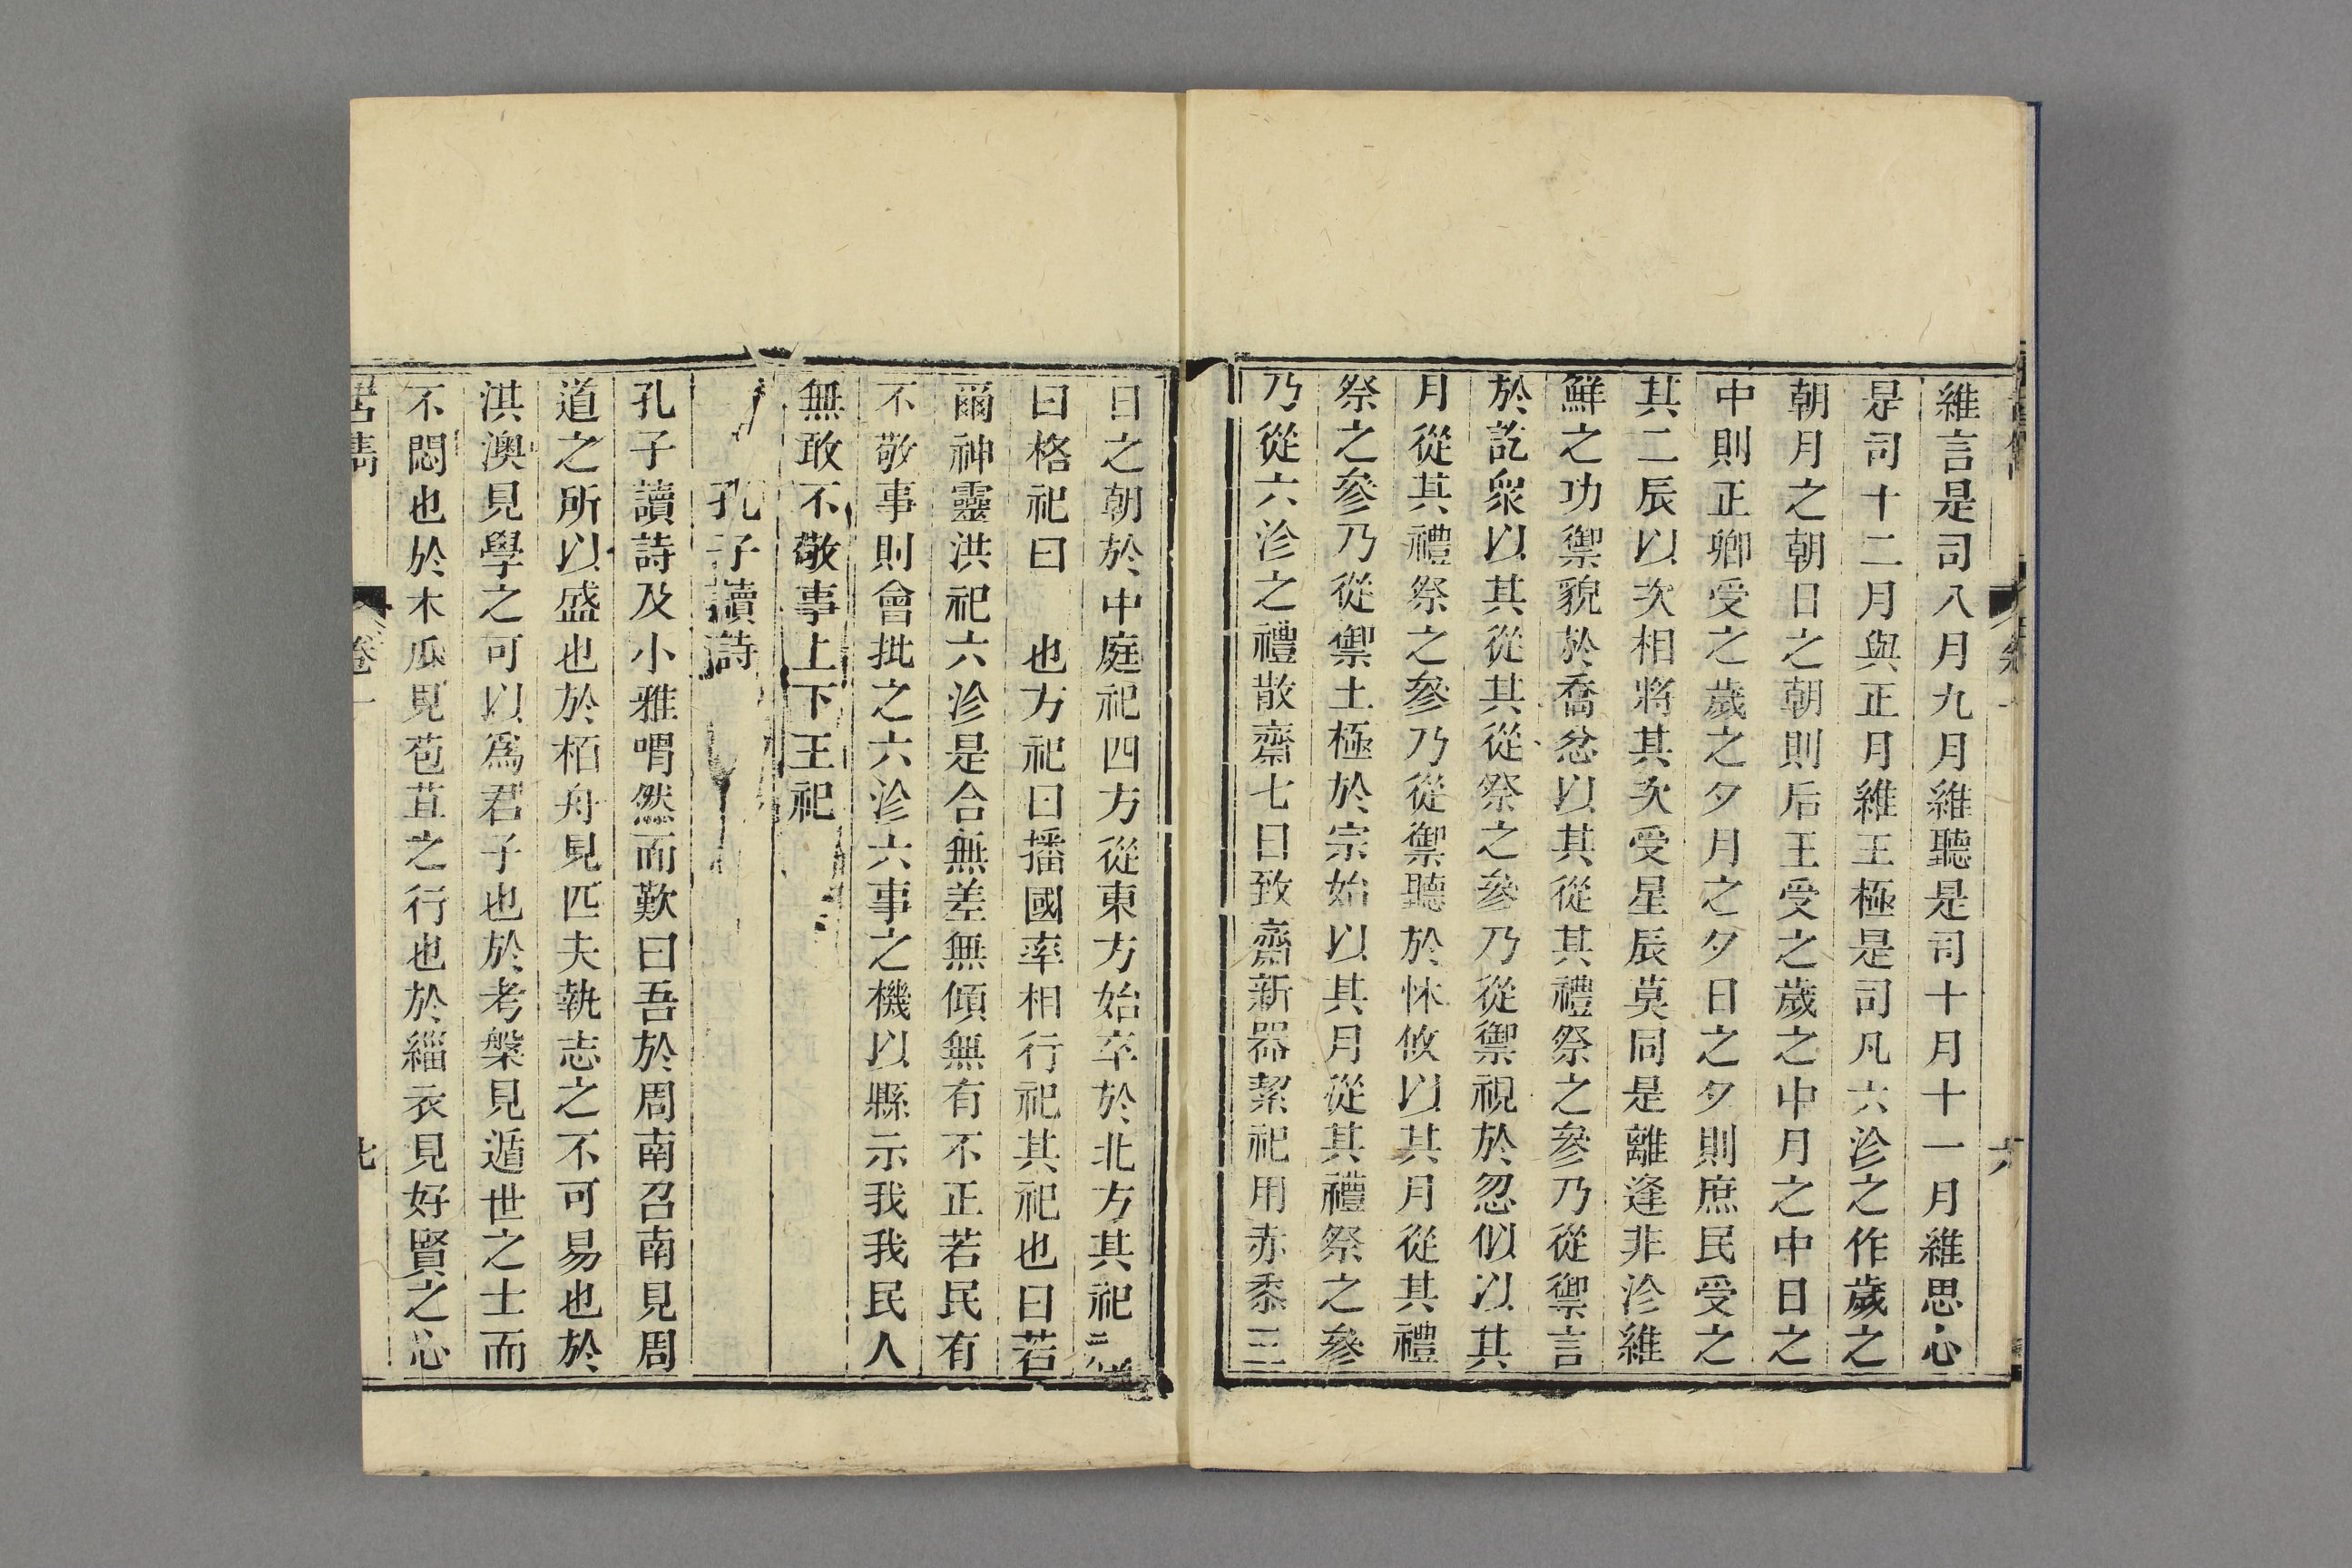 維言是司八月九月維聽是司十月十一月維思心
是司十二月與正月維王極是司凡六沴之作歲之
朝月之朝日之朝則后王受之歲之中月之中日之
中則正卿受之歲之夕月之夕日之夕則庶民受之
其二辰以次相將其次受星辰莫同是離逢非沴維
鮮之功禦貌於喬忿以其從其禮祭之參乃從禦言
於訖衆以其從其從祭之參乃從禦視於忽似以其
月從其禮祭之參乃從禦聽於怵攸以其月從其禮
祭之參乃從禦土極於宗始以其月從其禮祭之參
乃從六沴之禮散齋七日致齋新器絜祀用赤黍三
日之朝於中庭祀四方從東方始卒於北方其祀
曰格祀曰 也方祀曰播國率相行祀其祀也曰若
爾神靈洪祀六沴是合無差無傾無有不正若民有
不敬事則會批之六沴六事之機以縣示我我民人
無敢不敬事上下王祀
孔子讀詩
孔子讀詩及小雅喟然而歎曰吾於周南召南見周
道之所以盛也於栢舟見匹夫執志之不可易也於
淇澳見學之可以爲君子也於考槃見遁世之士而
不悶也於木瓜見苞苴之行也於緇衣見好賢之心
卷一